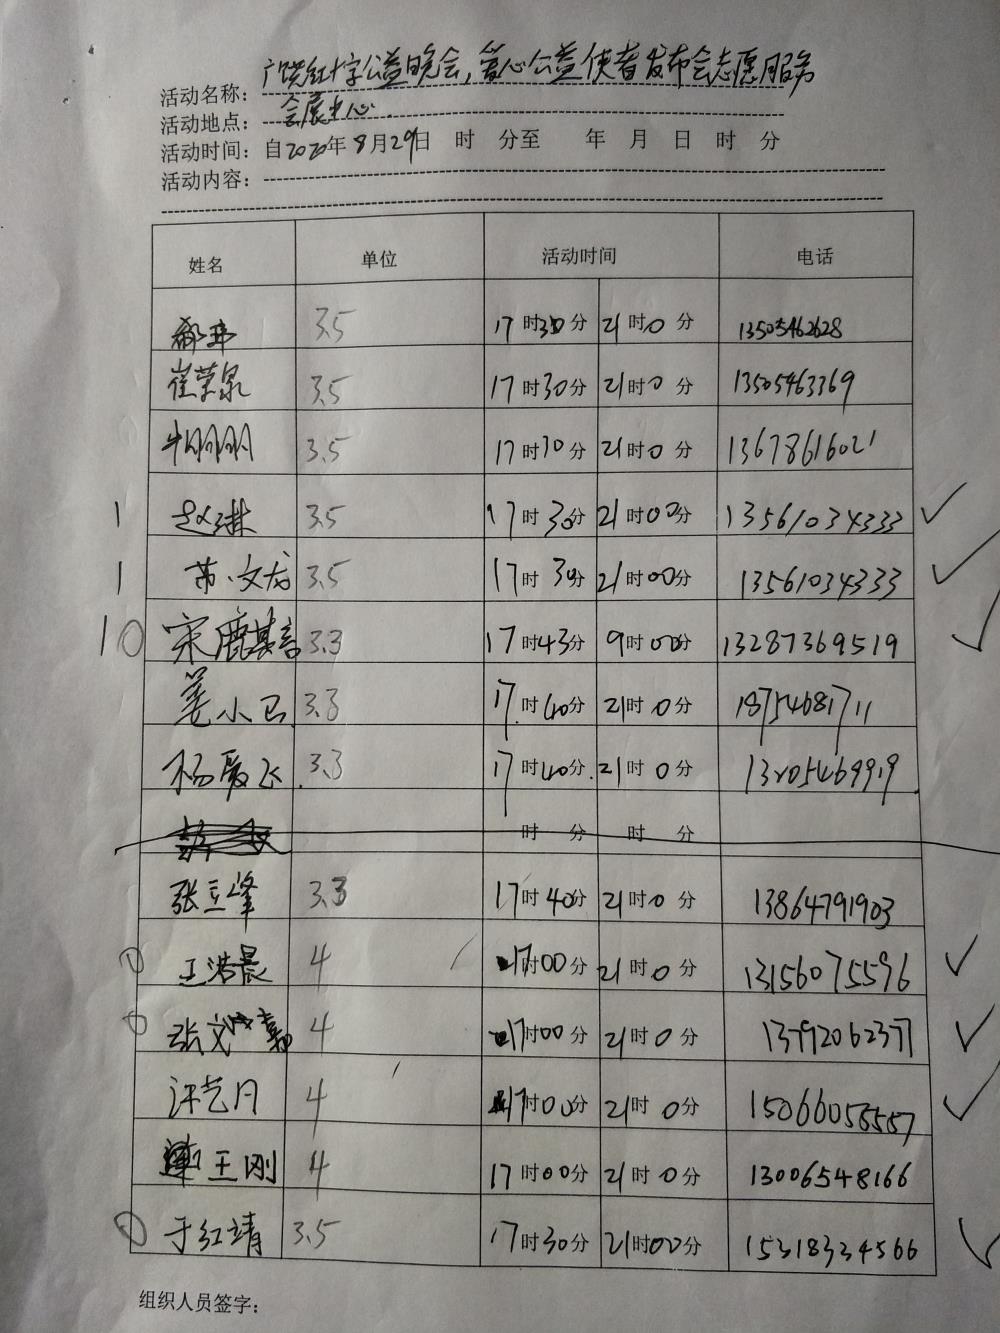 活动名称：广饶红十字公益晚会，爱心公益使者发布会志愿服务
活动地点：会展中心
活动时间：自2020年8月29日 时 分至 年 月 日 时 分
活动内容：
姓名 单位 活动时间 电话
3.5 17时30分 21时0分 13505462628
崔荣泉 3.5 17时30分 21时0分 13505463369
牛明明 3.5 17时30分 21时0分 13678616021
1 赵琳 3.5 17时30分 21时00分 13561034333 ✓
1 苏文龙 3.5 17时30分 21时00分 13561034333 ✓
10 宋鹿其言 3.3 17时43分 9时00分 13287369519 ✓
姜小卫 3.3 17时40分 21时0分 18754681711
杨爱飞 3.3 17时40分 21时0分 13205469919
时 分 时 分
张立峰 3.3 17时40分 21时0分 13864791903
王浩晨 4 17时00分 21时0分 13156075596 ✓
张文 4 17时00分 21时0分 13792062377 ✓
许艺月 4 17时00分 21时0分 15066058557 ✓
王刚 4 17时00分 21时0分 13006548166
于红靖 3.5 17时30分 21时00分 15318334566 ✓
组织人员签字：